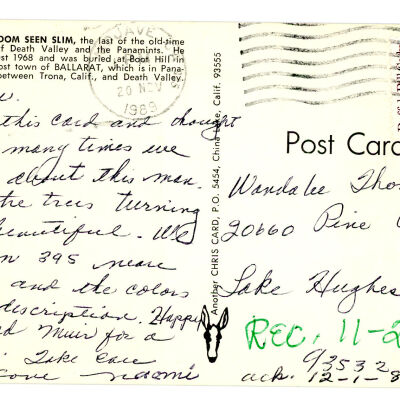 DOM SEEN SLIM, the last of the old-time
f Death Valley and the Panamints. He
st 1968 and was buried at Boot Hill in
ost town of BALLARAT, which is in Pana-
between Trona, Calif., and Death Valley.
SAVE
20 NOV
1989
w.
this card and thought
many times we
about this man.
the trees turning
beautiful. We
n 395 near
and the colors
description. Happy
d Muir for a
Take care
Love Naomi
Another CHRIS CARD, P.O. 5454, China Lake, Calif. 93555
Post Card
Wandalee Tho
20660 Pine
Lake Hughes
REC. 11-2
93532
ack. 12-1-8